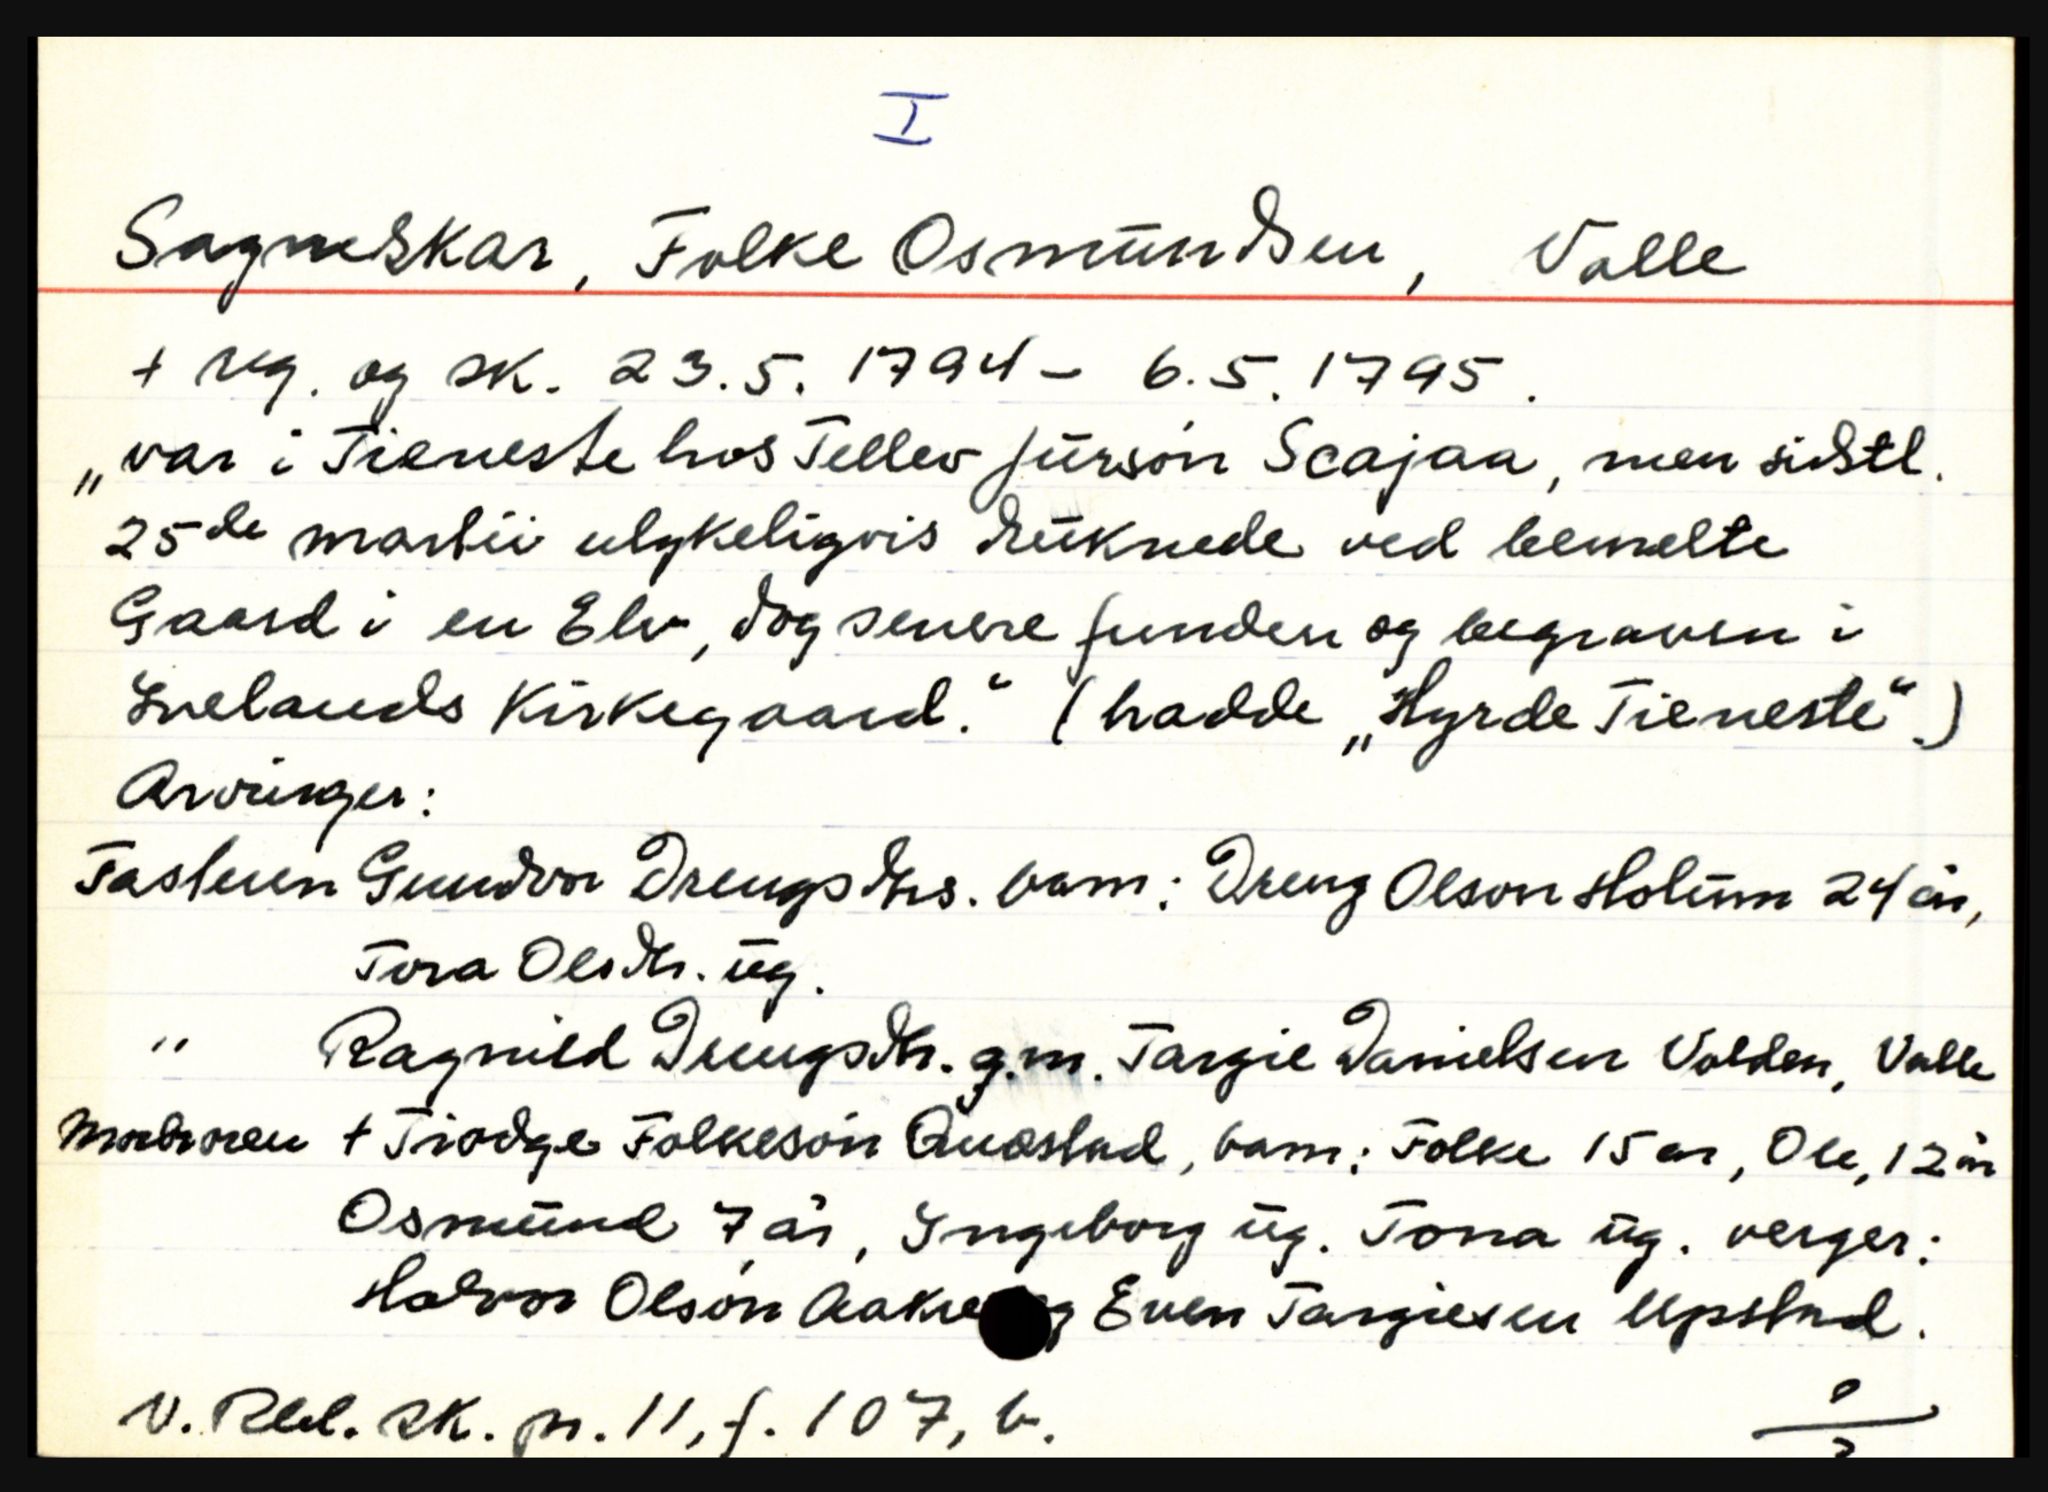 I
Sagneskar, Folke Osmundsen, Valle
+ reg. og sk. 23.5.1794 - 6.5.1795.
„var i Tieneste hos Tellev Jurson Scajaa, men sidstl.
25de martii ulykeligvis druknede ved bemelte
Gaard i en Elv, dog senere funden og begraven i
Ivelands Kirkegaard.“ (hadde „Hyrde Tieneste“.)
Arvinger:
Fasteren Gundvor Drengsdtrs. barn: Dreng Olson Holum 24 år,
Tora Olsdtr. ug.
" Ragnild Drengsdtr. g.m. Targie Danielsen Volden, Valle
Morbroren + Tiodge Folkeson Quæstad, barn: Folke 15 år, Ole, 12 år
Osmund 7 år, Ingeborg ug. Tona ug. verger:
Halvor Olson Aakre og Even Targiesen Upstad.
V. Rbl. sk. pr. 11, f. 107, b.